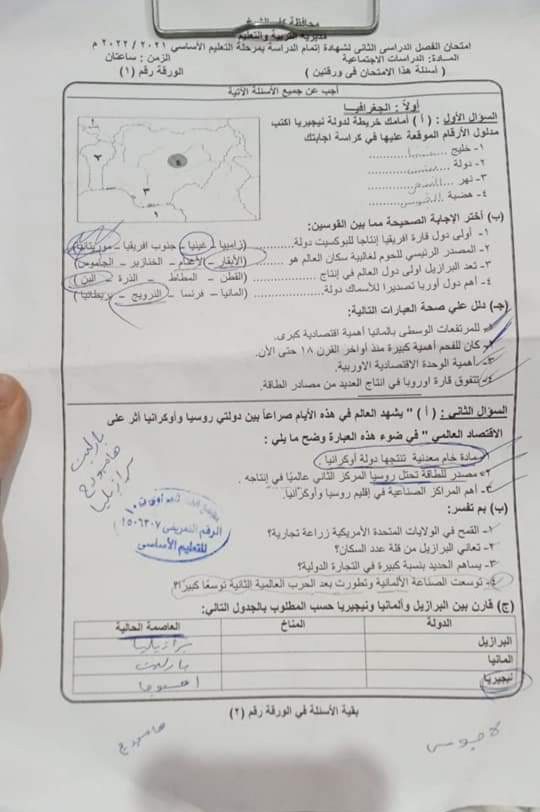 محافظة كفر الشيخ
مديرية التربية والتعليم
امتحان الفصل الدراسى الثانى لشهادة إتمام الدراسة بمرحلة التعليم الأساسى ٢٠٢١ / ٢٠٢٢ م
المــادة: الدراسات الاجتماعية
الزمن : ساعتان
( أسئلة هذا الامتحان فى ورقتين )
الورقة رقم (١)
أجب عن جميع الأسئلة الآتية
أولاً : الجغرافيـا
السؤال الأول : ( أ ) أمامك خريطة لدولة نيجيريا اكتب
مدلول الأرقام الموقعة عليها في كراسة اجابتك
١- خليج
٢- دولة
٣- نهر
٤- هضبة
(ب) أختر الإجابة الصحيحة مما بين القوسين:
١- أولى دول قارة افريقيا إنتاجا للبوكسيت دولة (زامبيا – غينيا – جنوب افريقيا – موريتانيا)
٢- المصدر الرئيسي للحوم لغالبية سكان العالم هو (الأبقار – الأغنام – الخنازير – الجاموس)
٣- تعد البرازيل اولى دول العالم في إنتاج (القطن – المطاط – الذرة – البن)
٤- أهم دول أوربا تصديرا للأسماك دولة (المانيا – فرنسا – النرويج – بريطانيا)
(جـ) دلل علي صحة العبارات التالية:
١- للمرتفعات الوسطى بالمانيا أهمية اقتصادية كبرى.
٢- كان للفحم أهمية كبيرة منذ أواخر القرن ١٨ حتى الأن.
٣- أهمية الوحدة الاقتصادية الاوربية.
٤- تتفوق قارة اوروبا في انتاج العديد من مصادر الطاقة.
السؤال الثانى : ( أ ) " يشهد العالم في هذه الأيام صراعاً بين دولتي روسيا وأوكرانيا أثر على
الاقتصاد العالمي " في ضوء هذه العبارة وضح ما يلي :
١- مادة خام معدنية تنتجها دولة أوكرانيا.
٢- مصدر للطاقة تحتل روسيا المركز الثاني عالميًا في إنتاجه .
٣- أهم المراكز الصناعية في إقليم روسيا وأوكرانيا.
(ب) بم تفسر:
١- القمح في الولايات المتحدة الأمريكية زراعة تجارية؟
٢- تعاني البرازيل من قلة عدد السكان؟
٣- يساهم الحديد بنسبة كبيرة في التجارة الدولية؟
٤- توسعت الصناعة الألمانية وتطورت بعد الحرب العالمية الثانية توسعًا كبيرًا؟
(ج) قارن بين البرازيل وألمانيا ونيجيريا حسب المطلوب بالجدول التالي:
الدولة المناخ العاصمة الحالية
البرازيل برازيليا
المانيا بارلين
نيجيريا
بقية الأسئلة في الورقة رقم (٢)
بارلين
هامبورج
برازيليا
الرقم التعريفى ١٥٠٦٣٠٧
للتعليم الأساسى
هامبورج
لاجوس